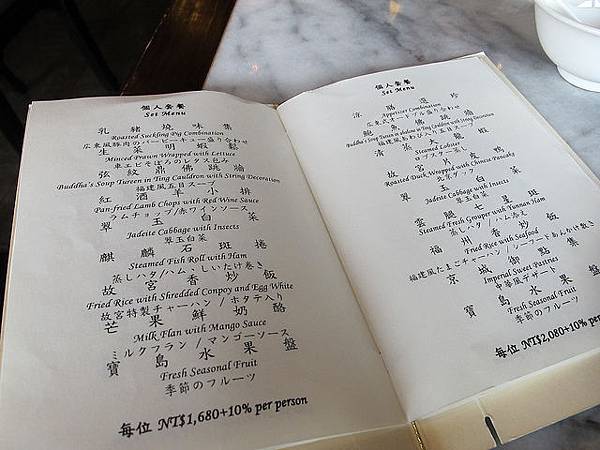 個人套餐
Set Menu
乳豬燒味集
Roasted Suckling Pig Combination
広東風豚肉のバーベキュー盛り合わせ
生菜明蝦鬆
Minced Prawn Wrapped with Lettuce
車エビそぼろのレタス包み
弦紋鼎佛跳牆
Buddha's Soup Tureen in Ting Cauldron with String Decoration
福建風五目スープ
紅酒羊小排
Pan-fried Lamb Chops with Red Wine Sauce
ラムチョップ/赤ワインソース
翠玉白菜
Jadeite Cabbage with Insects
翠玉白菜
麒麟石斑捲
Steamed Fish Roll with Ham
蒸しハタ/ハム、しいたけ巻き
故宮香炒飯
Fried Rice with Shredded Conpoy and Egg White
故宮特製チャーハン / ホタテ入り
芒果鮮奶酪
Milk Flan with Mango Sauce
ミルクフラン / マンゴーソース
寶島水果盤
Fresh Seasonal Fruit
季節のフルーツ
每位 NT$1,680+10% per person
個人套餐
Set Menu
Appetizer Combination
広東式オードブル盛り合わせ
鮑魚佛跳牆
清蒸大龍蝦
Steamed Lobster
ロブスター蒸し
故宮片皮鴨
Roasted Duck Wrapped with Chinese Pancake
北京ダック
翠玉白菜
Jadeite Cabbage with Insects
翠玉白菜
雲腿大星斑
Steamed Fresh Grouper with Yunnan Ham
蒸しハタ/ハム添え
福州香炒飯
Fried Rice with Seafood
福建風たまごチャーハン/シーフードあんかけ
京城御點集
Imperial Sweet Pastries
中華風デザート
寶島水果盤
Fresh Seasonal Fruit
季節のフルーツ
每位 NT$2,080+10% per person